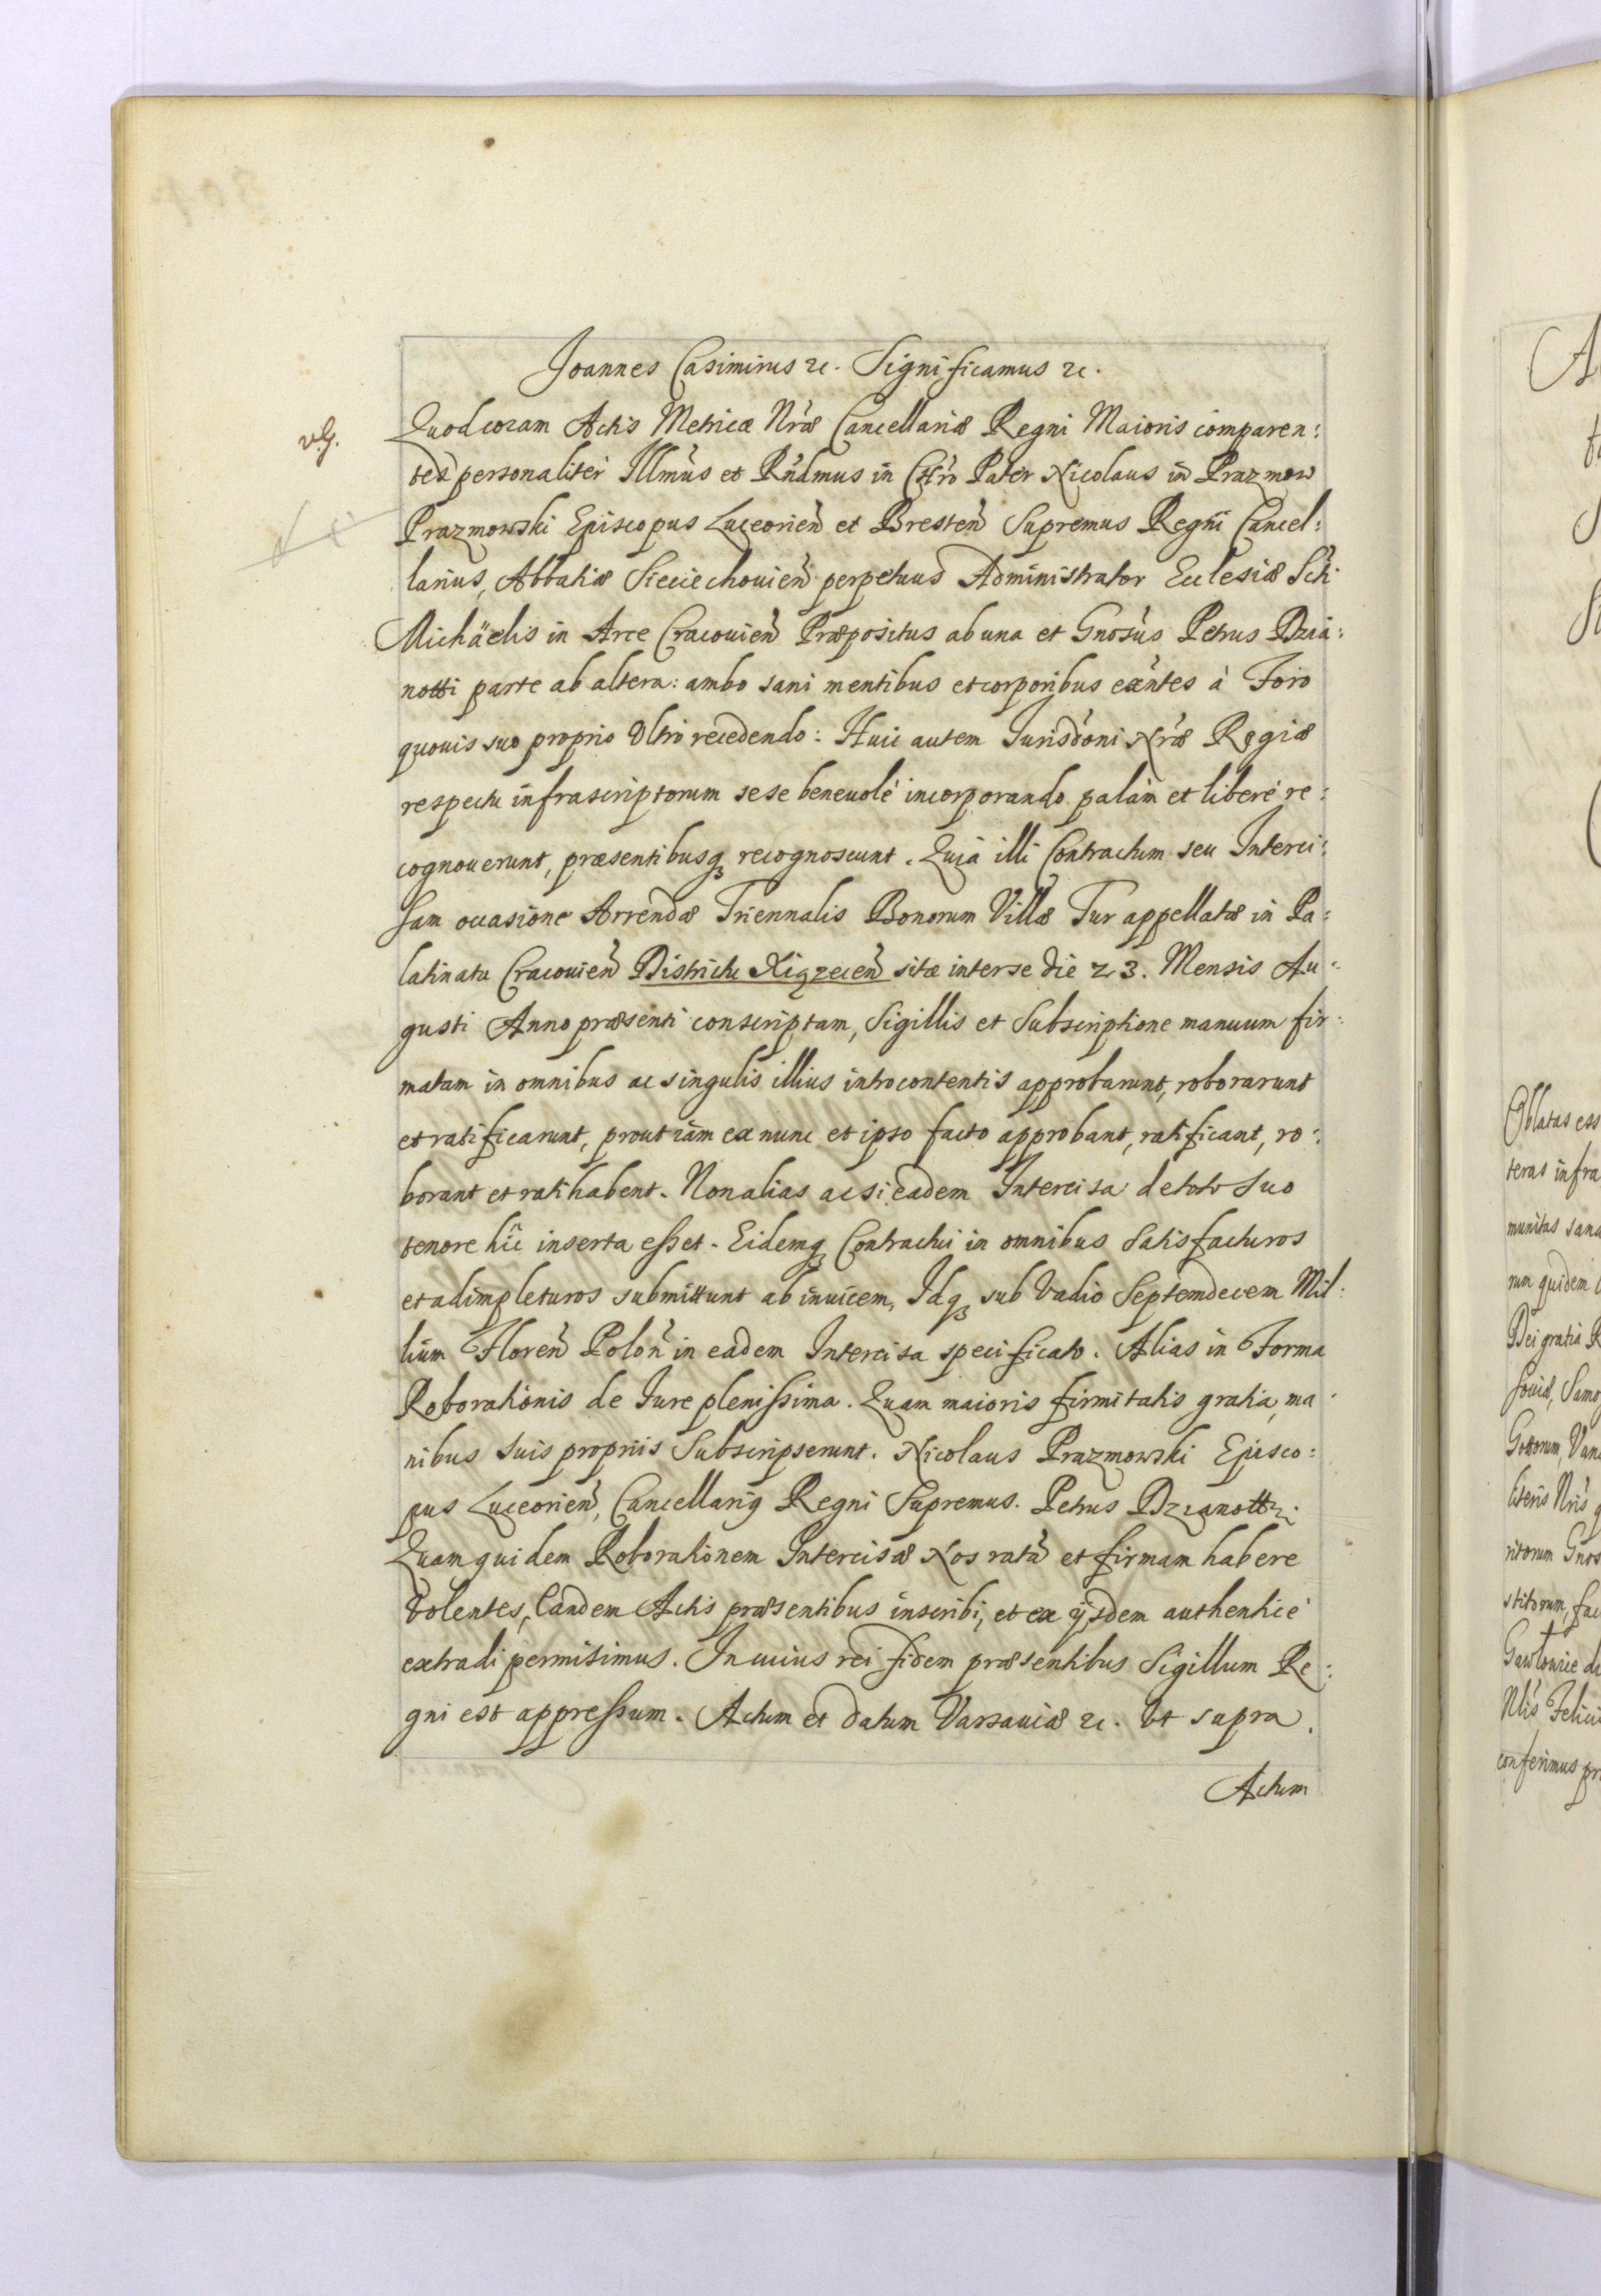 Joannes Casimirus &c. Significamus &c.
Quod coram Actis Metricæ Nræ Cancellariæ Regni Maioris comparen:
tes personaliter Illmus et Rndmus in Chro Pater Nicolaus in Prazmow
Prazmowski Episcopus Luceorien et Bresten Supremus Regni Cancel:
larius, Abbatiæ Sieciechouien perpetuus Administrator Ecclesiæ Scti
Michäelis in Arce Cracouien Præpositus ab una et Gnosus Petrus Dzia:
notti parte ab altera: ambo sani mentibus et corporibus exntes à Foro
quouis suo proprio Vltro recedendo: Huic autem Jurisdoni Nræ Regiæ
respectu infrascriptorum sese beneuolè incorporando palàm et liberè re:
cognouerunt, præsentibusq recognoscunt. Quia illi Contractum seu Interci:
sam occasione Arrendæ Triennalis Bonorum Villæ Tur appellatæ in Pa:
latinatu Cracouien Districtu Xiązecen sitæ inter se die 23. Mensis Au:
gusti Anno præsenti conscriptam, Sigillis et Subscriptione manuum fir:
matam in omnibus ac singulis illius introcontentis approbarunt, roborarunt
et ratificarunt, prout iam ex nunc et ipso facto approbant, ratificant, ro:
borant et ratihabent. Non alias ac si eadem Intercisa de toto suo
tenore hîc inserta esset. Eidemq Contractui in omnibus Satisfacturos
et adimpleturos submittunt ab inuicem, Idq sub Vadio Septemdecem Mil:
lium Floren Polon in eadem Intercisa specificato. Alias in Forma
Roborationis de Jure plenissima. Quam maioris firmitatis gratia, ma:
nibus suis proprijs Subscripserunt. Nicolaus Prazmowski Episco:
pus Luceorien, Cancellarius Regni Supremus. Petrus Dzianotti.
Quam quidem Roborationem Intercisæ Nos ratã et firmam habere
Volentes, Eandem Actis præsentibus inscribi, et ex ijsdem authenticè
extradi permisimus. In cuius rei fidem præsentibus Sigillum Re:
gni est appressum. Actum et datum Varsauiæ &c. Vt supra.
Actum